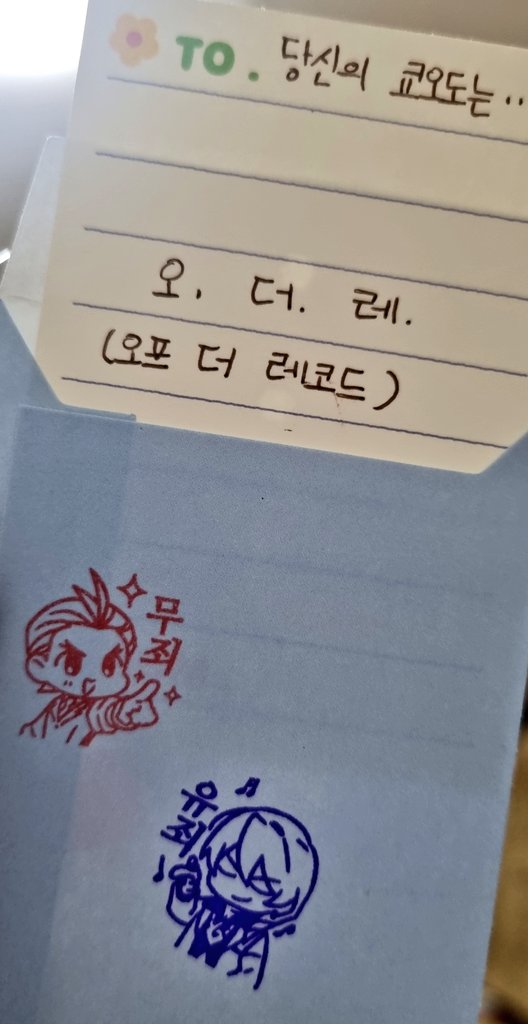 TO. 당신의 쿄오도는..
오. 더. 레.
(오프 더 레코드)
무죄
유죄